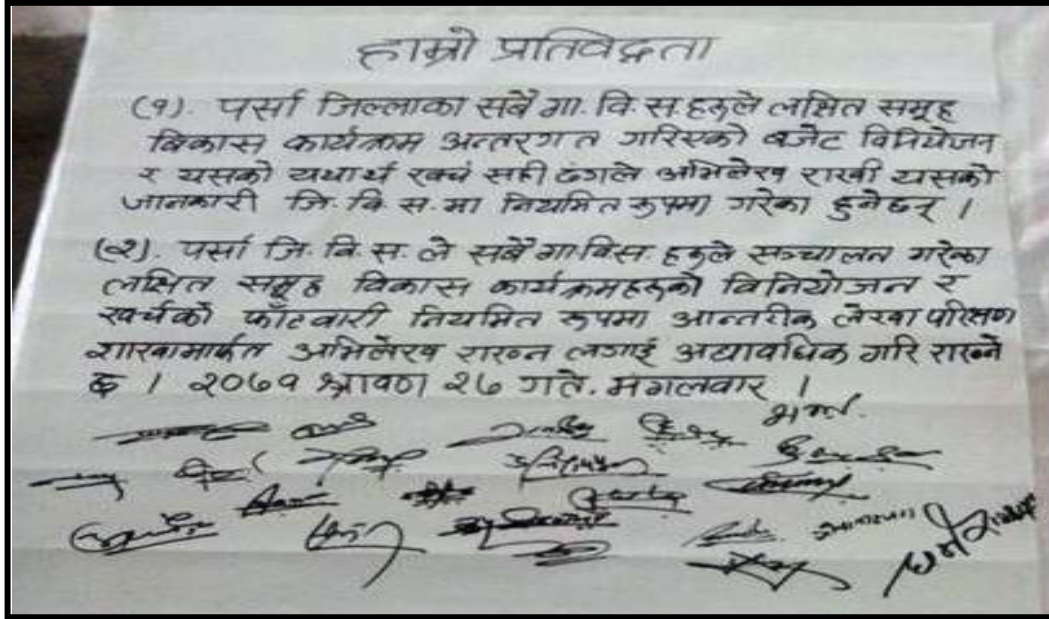 हाम्रो प्रतिवद्धता
(१). पर्सा जिल्लाका सबै गा. वि. स. हरुले लक्षित समूह
विकास कार्यक्रम अन्तरगत गरिएको बजेट विनियोजन
र यसको यथार्थ एवं सही ढंगले अभिलेख राखी यसको
जानकारी जि. वि. स. मा नियमित रुपमा गरेका हुनेछन् ।
(२). पर्सा जि. वि. स. ले सबै गा.वि.स. हरुले सञ्चालन गरेका
लक्षित समूह विकास कार्यक्रमहरुको विनियोजन र
खर्चको फाँटवारी नियमित रुपमा आन्तरीक लेखा परिक्षण
शाखामार्फत अभिलेख राख्न लगाई अद्यावधिक गरि राख्ने
छ । २०७१ श्रावण २७ गते. मंगलवार ।